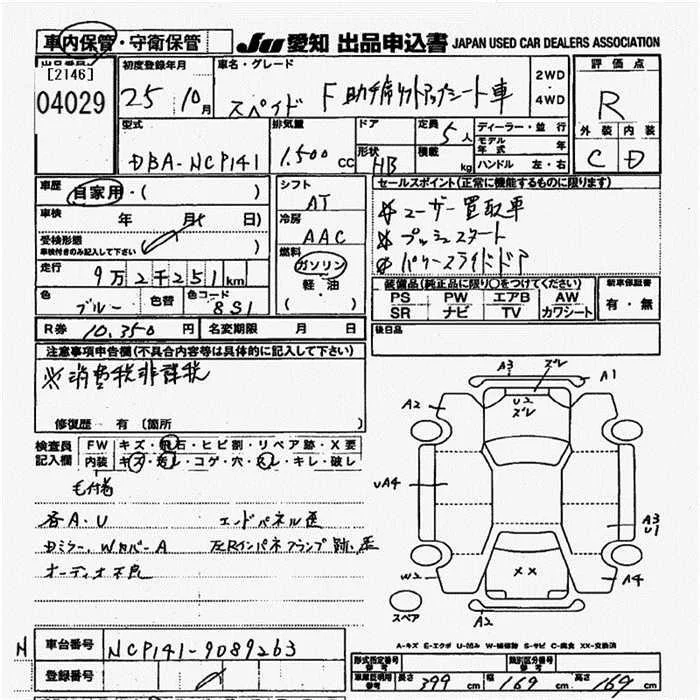 車内保管・守衛保管
JU 愛知 出品申込書 JAPAN USED CAR DEALERS ASSOCIATION
[2146]
04029
初度登録年月
25 10月
車名・グレード
スペイド F 助手席リフトアップシート車
2WD
4WD
評価点
R
外装 内装
C D
型式
DBA-NCP141
排気量
1.500 cc
ドア
形状
HB
定員 5人
積載 kg
ディーラー・並行
モデル年式 年
ハンドル 左・右
車歴
自家用・( )
車検 年 月( 日)
受検形態
車検付きのみ記入して下さい
走行
9万2千251km
色
ブルー
色替
色コード
8S1
シフト
AT
冷房
AAC
燃料
ガソリン
軽・油
( )
セールスポイント(正常に機能するものに限ります)
ユーザー買取車
プッシュスタート
パワースライドドア
装備品(純正品に限り○をつけてください)
PS PW エアB AW
SR ナビ TV カワシート
新車保証書
有・無
R券 10.350円
名変期限 月 日
後日品
注意事項申告欄(不具合内容等は具体的に記入して下さい)
※消費税非課税
修復歴 有 〔箇所 〕
検査員記入欄
FW キズ・飛石・ヒビ割・リペア跡・X要
内装 キズ・汚レ・コゲ・穴・スレ・キレ・破レ
毛付着
各A.U エンドパネル歪
Dミラー、WカバーA 左Rインパネフランプ 跡、歪
オーディオ不良
A3 ズレ A1
A2 U2
ズレ
UA4
A3
U1
W2 XX A4
スペア A2
A-キズ E-エクボ U-凹み W-補修跡 S-サビ C-腐食 XX-交換済
N 車台番号 NCP141-9089263
登録番号
形式指定番号 参考
類別区分番号 参考
車庫証明用参考 長さ 399 cm 幅 169 cm 高さ 169 cm